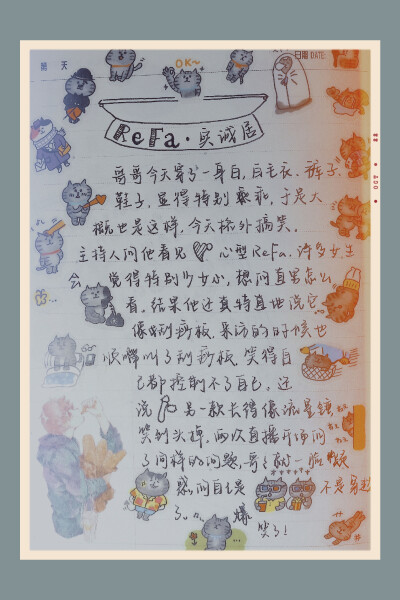 OK~
日期 DATE:
ReFa·实诚居
哥哥今天穿了一身白,白毛衣、裤子、
鞋子,显得特别乖乖,于是大
概也是这样,今天格外搞笑。
主持人问他看见 心型ReFa,许多女生
会觉得特别少女心,想问直男怎么
看。结果他还真特直地说它
像刮痧板、采访的时候也
顺嘴叫了刮痧板、笑得自
己都控制不了自己。还
说 另一款长得像流星锤
笑到头掉。两次直播开场问
了同样的问题,哥哥就一脸疑
惑问自己是 不是穿越
了。。爆
笑了!